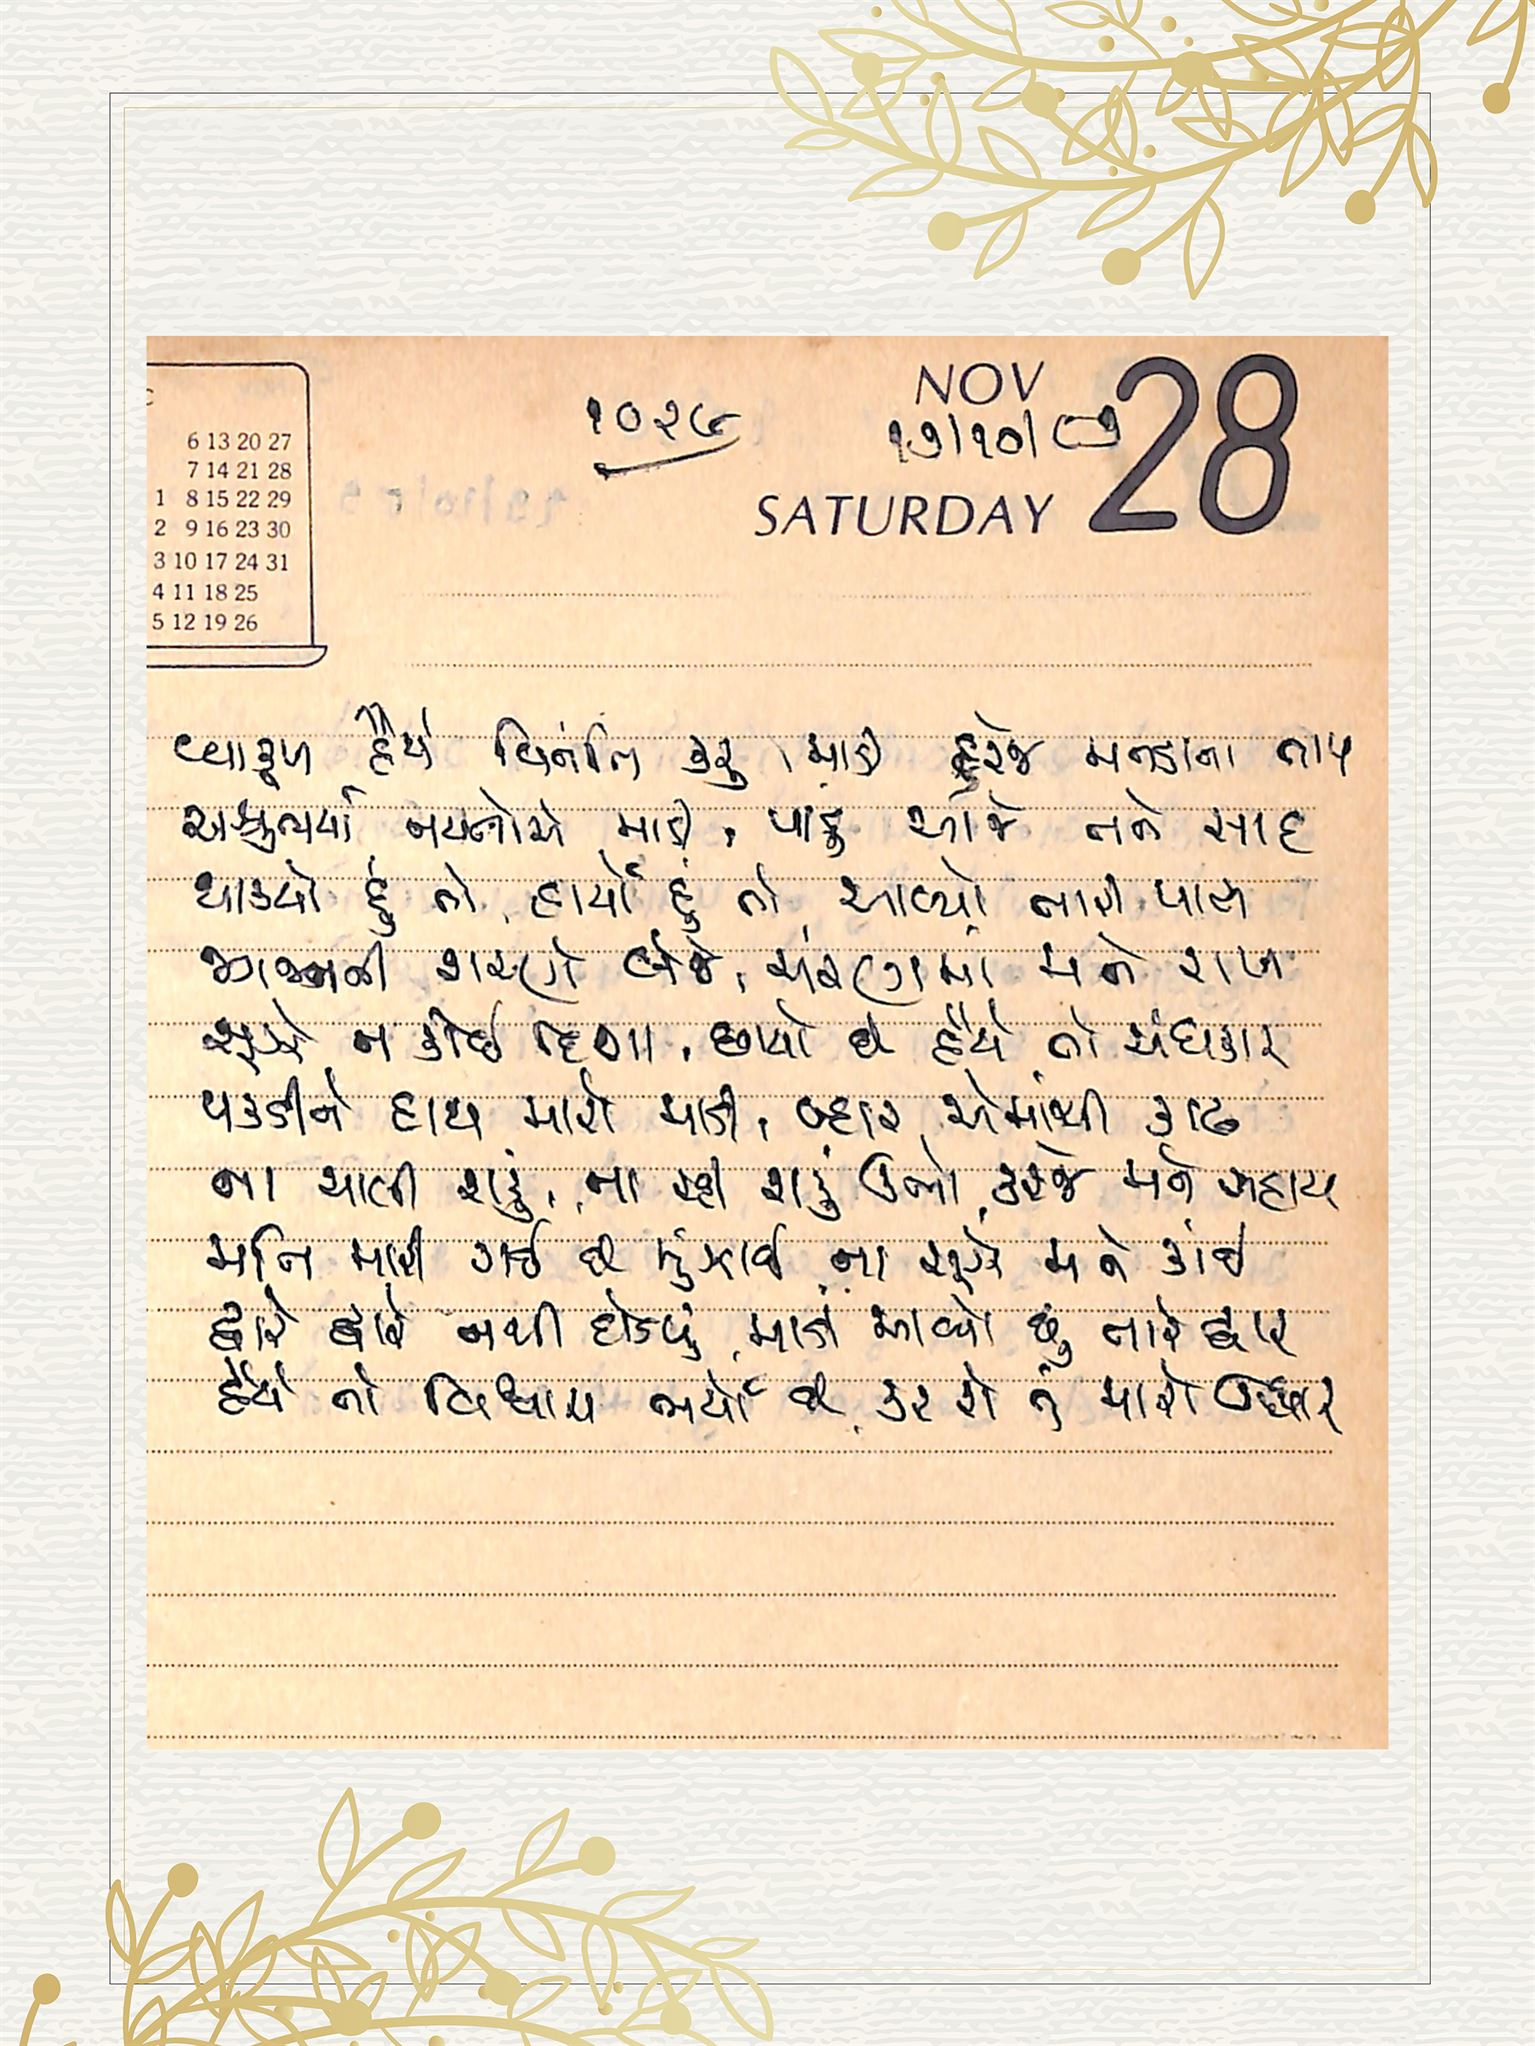 NOV
28
૧૦૨૯
૧૭/૧૦/૮૭
SATURDAY
6 13 20 27
7 14 21 28
1 8 15 22 29
2 9 16 23 30
3 10 17 24 31
4 11 18 25
5 12 19 26
વ્યાકૂળ હૈયે વિનંતિ કરું, માડી હરજે મનડાના તાપ
અશ્રુભર્યા નયનોએ માડી, પાડું આજે તને સાદ
થાક્યો હું તો, હાર્યો હું તો, આવ્યો તારી પાસ
જગજનની શરણે લેજે, ચરણમાં મને રાખ
સૂઝે ન કોઈ દિશા, છાયો છે હૈયે તો અંધકાર
પકડીને હાથ મારો માડી, બ્હાર એમાંથી કાઢ
ના ચાલી શકું, ના રહી શકું ઉભો, કરજે મને સહાય
મતિ મારી ગઈ છે મુંઝાઈ, ના સૂઝે મને કાંઈ
દ્વારે દ્વારે નથી દોડવું, માડી આવ્યો છું તારે દ્વાર
હૈયે તો વિશ્વાસ ભર્યો છે, કરશે તું મારો ઉદ્ધાર